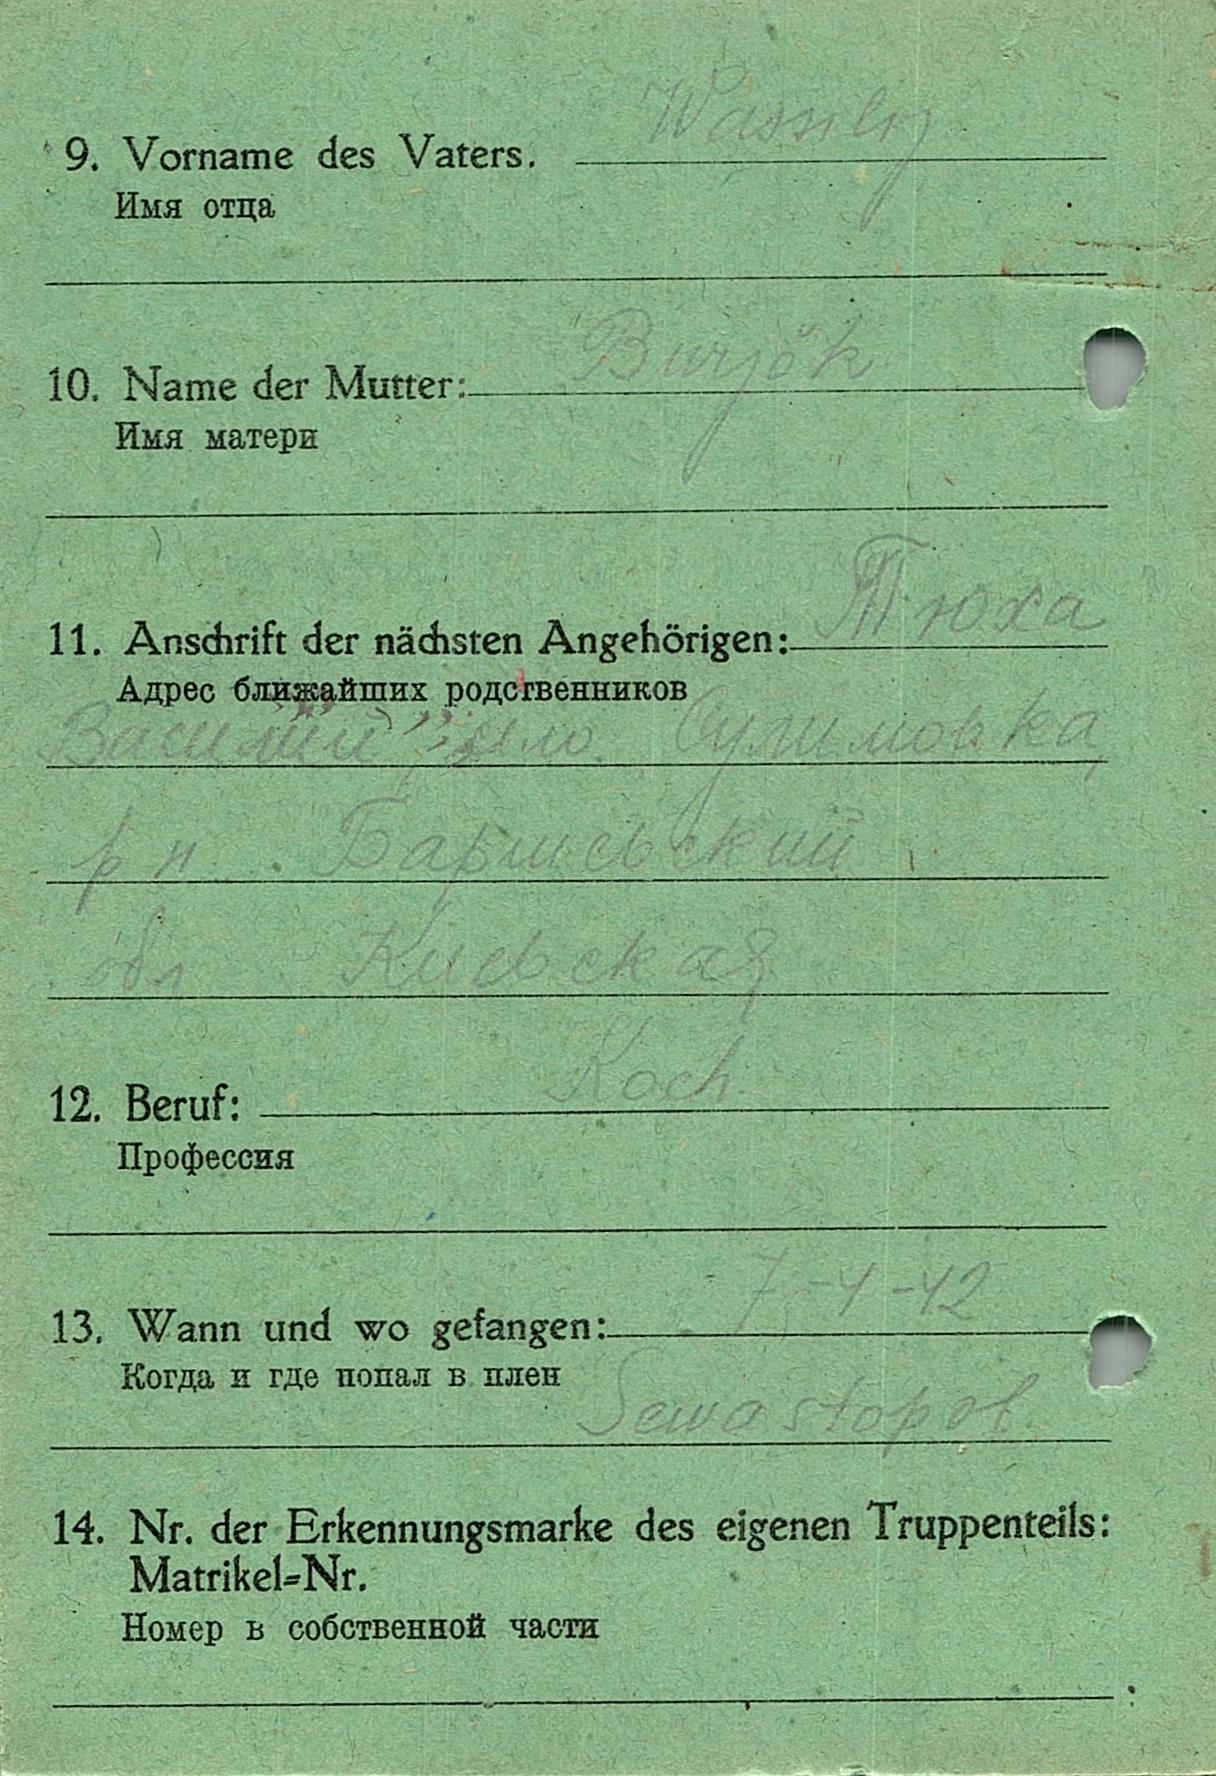 Wassilij
9. Vorname des Vaters.
Имя отца
Burjök
10. Name der Mutter:
Имя матери
Тюха
11. Anschrift der nächsten Angehörigen:
Адрес ближайших родственников
Василий село Сулимовка
р н Барышевский
обл Киевская
Koch
12. Beruf:
Профессия
7-4-42
13. Wann und wo gefangen:
Когда и где попал в плен
Sewastopol
14. Nr. der Erkennungsmarke des eigenen Truppenteils:
Matrikel-Nr.
Номер в собственной части